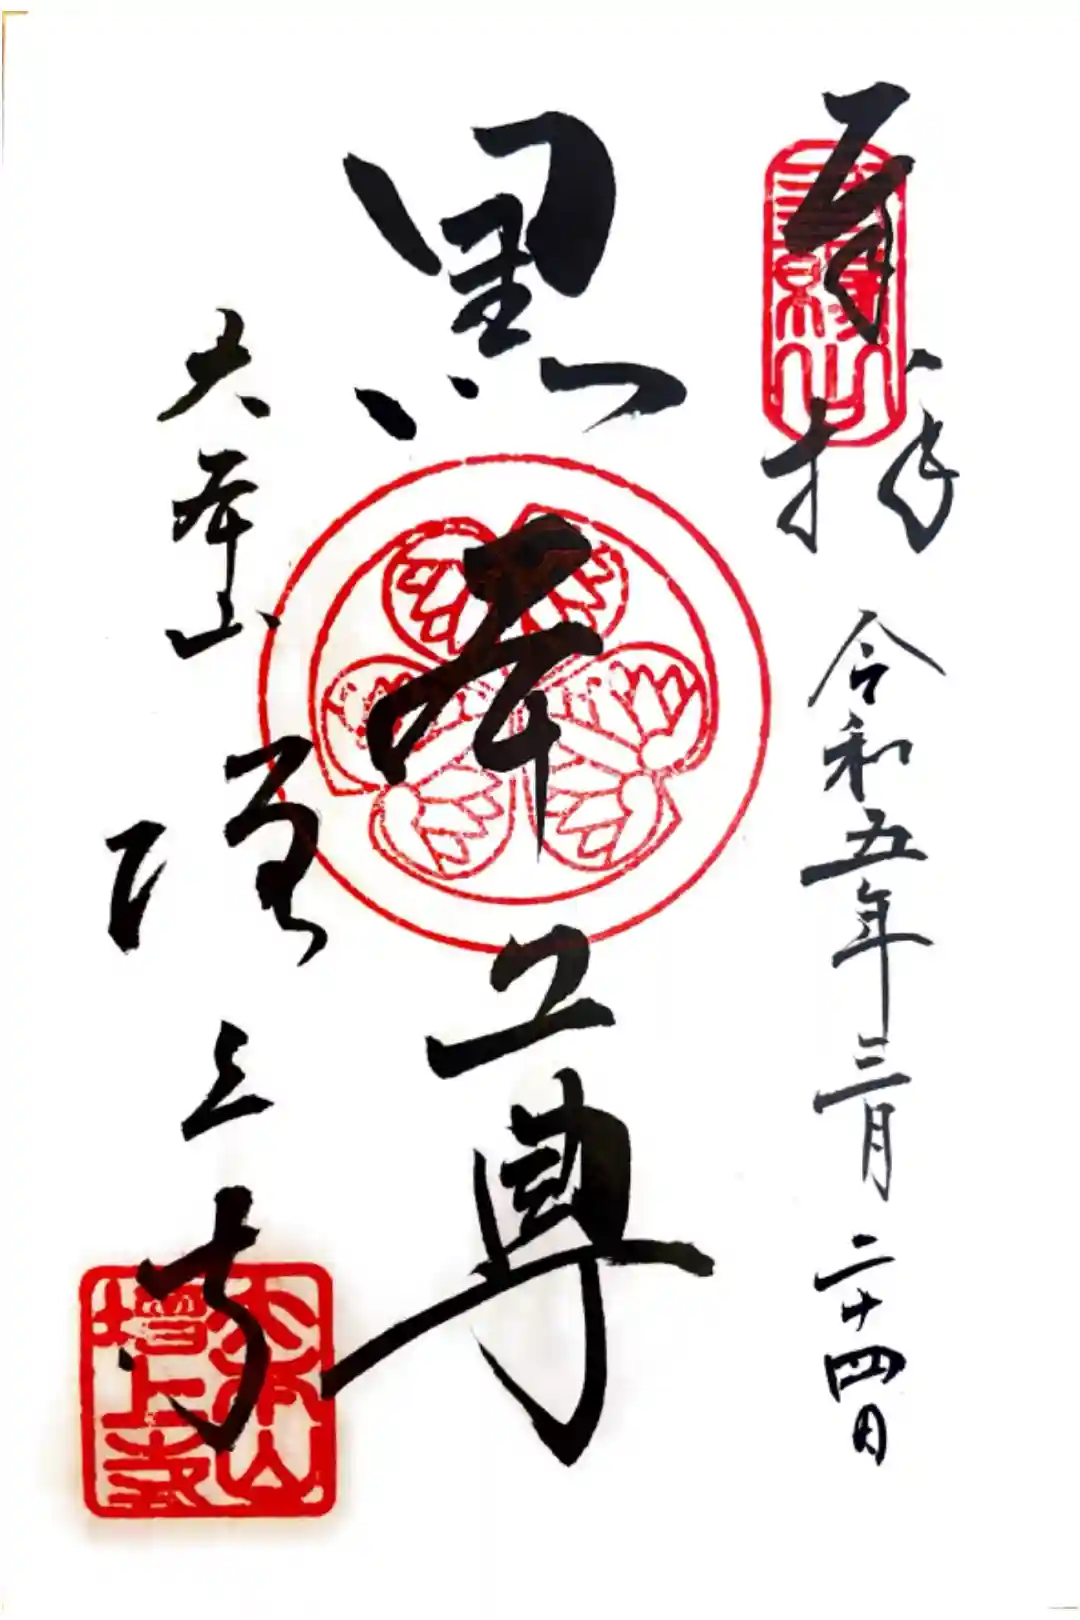 奉拝
令和五年三月二十四日
三縁山
黒本尊
大本山
増上寺
大本山
増上寺